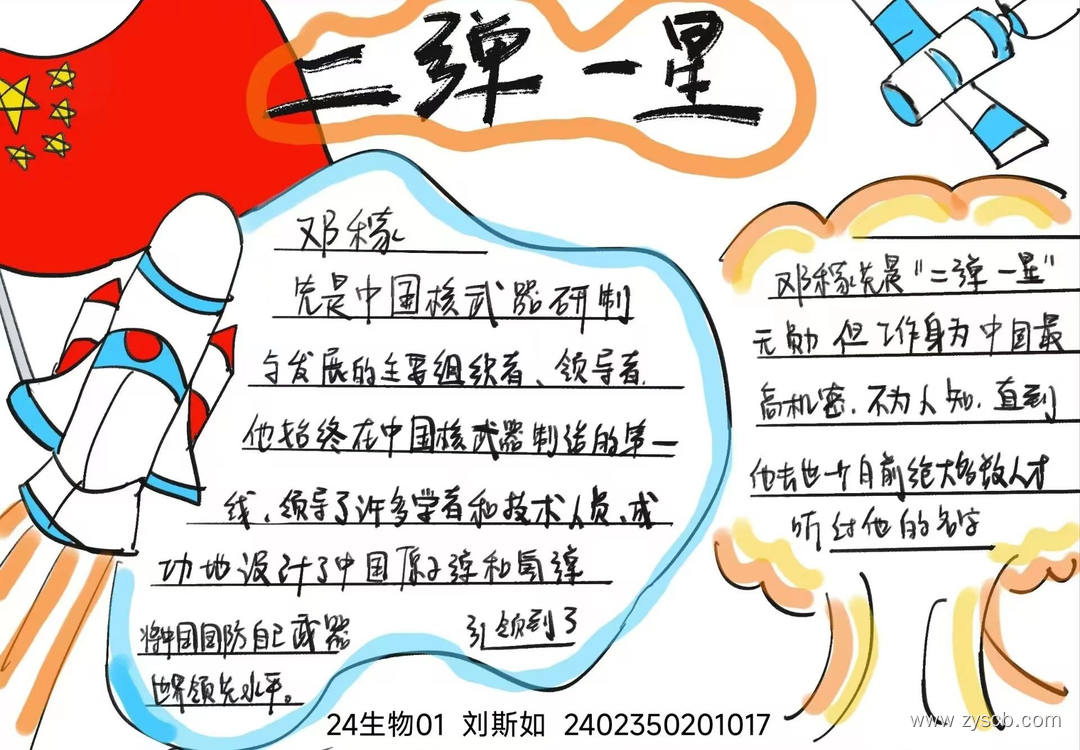 二弹一星
邓稼
先是中国核武器研制
与发展的主要组织者、领导者.
他始终在中国核武器制造的第一
线、领导了许多学者和技术人员、成
功地设计了中国原子弹和氢弹
将中国国防自己武器 引领到了
世界领先水平。
邓稼先是“二弹一星”
元勋 但工作身为中国最
高机密.不为人知.直到
他去世一个月前绝大多数人才
听过他的名字
24生物01 刘斯如 2402350201017
www.zyscb.com